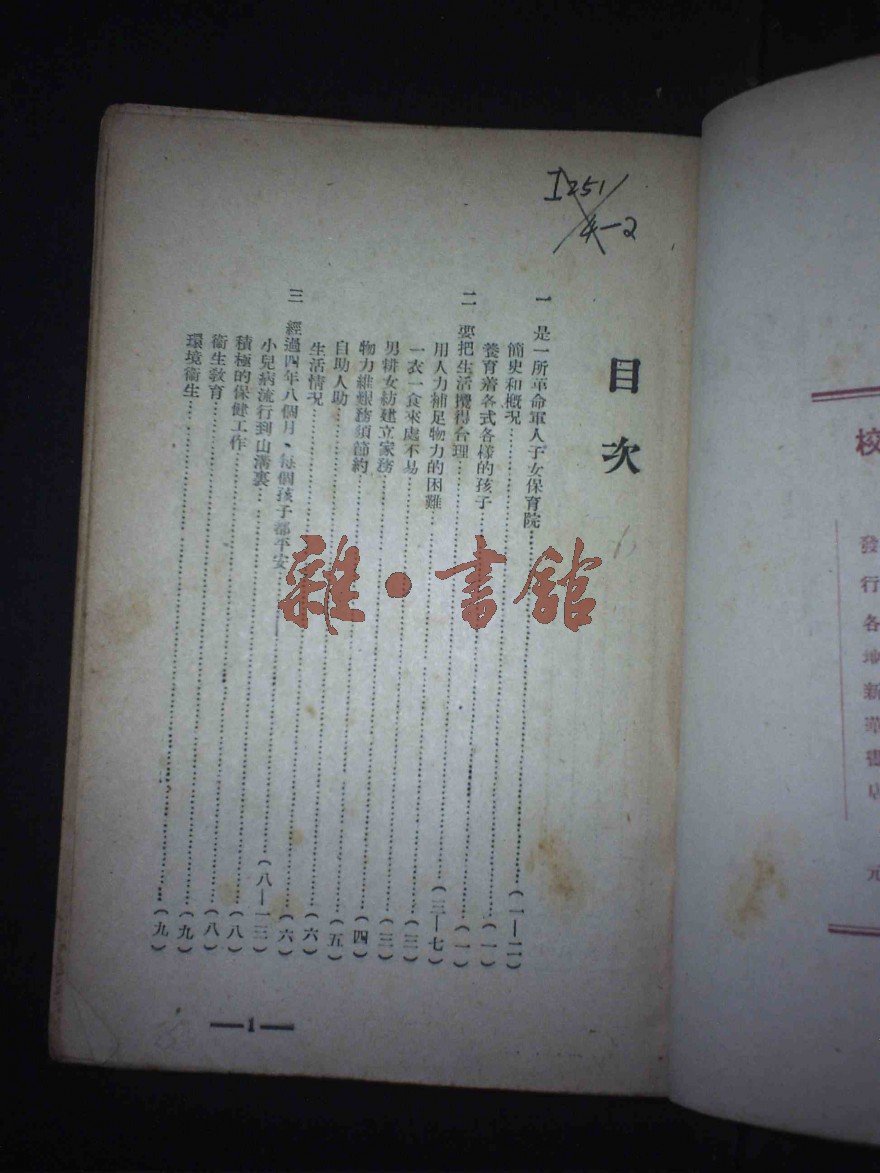 校
發行各地新華書店
元
I251
4-2
目次
一 是一所革命軍人子女保育院……(一—二)
簡史和概況……(一)
養育着各式各樣的孩子……(一)
二 要把生活攪得合理……(三—七)
用人力補足物力的困難……(三)
一衣一食來處不易……(三)
男耕女紡建立家務……(四)
物力維艱務須節約……(五)
自助人助……(六)
生活情況……(六)
三 經過四年八個月、每個孩子都平安……(八—一三)
小兒病流行到山溝裏……(八)
積極的保健工作……(八)
衞生教育……(九)
環境衞生……(九)
—1—
雜·書館